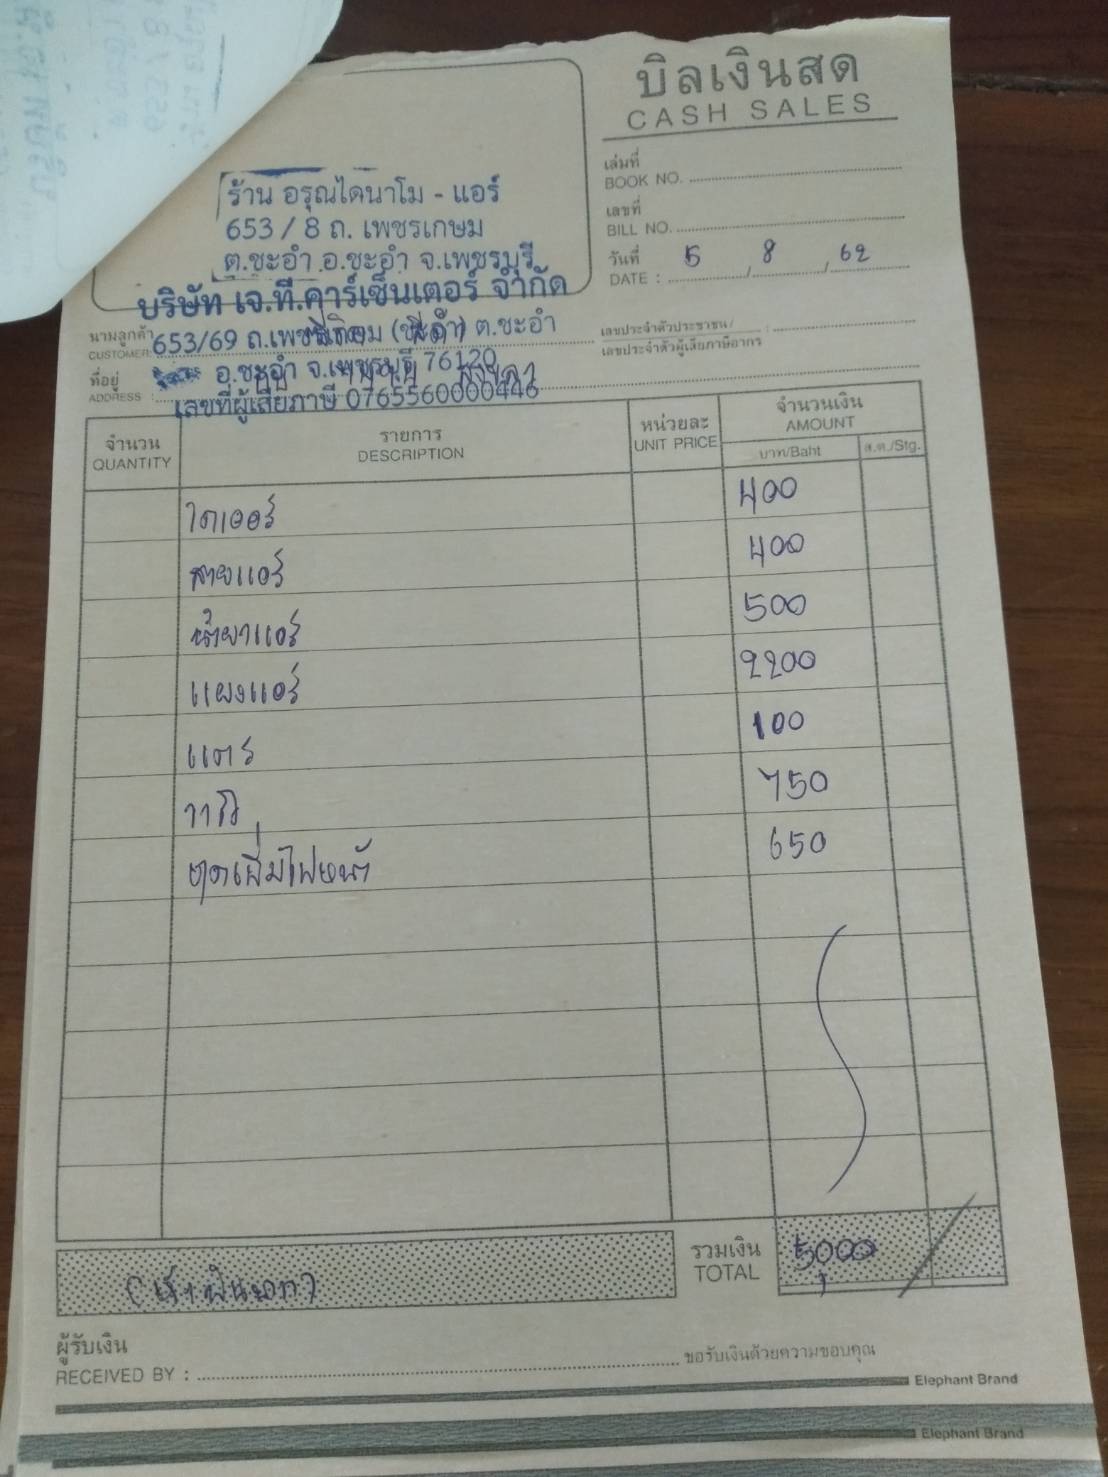 บิลเงินสด
CASH SALES
เล่มที่
BOOK NO.
เลขที่
BILL NO.
วันที่ 5 / 8 / 62
DATE :
ร้าน อรุณไดนาโม - แอร์
653 / 8 ถ. เพชรเกษม
ต.ชะอำ อ.ชะอำ จ.เพชรบุรี
บริษัท เจ.ที.คาร์เซ็นเตอร์ จำกัด
นามลูกค้า
CUSTOMER: 653/69 ถ.เพชรเกษม ต.ชะอำ
เลขประจำตัวประชาชน/ :
เลขประจำตัวผู้เสียภาษีอากร
ที่อยู่ อ.ชะอำ จ.เพชรบุรี 76120
ADDRESS : เลขที่ผู้เสียภาษี 0765560000446
จำนวน รายการ หน่วยละ จำนวนเงิน
QUANTITY DESCRIPTION UNIT PRICE AMOUNT
บาท/Baht ส.ต./Stg.
ไดเออร์ 400
สายแอร์ 400
น้ำยาแอร์ 500
แผงแอร์ 2200
แตร 100
วาล์ว 750
ชุดเพิ่มไฟหน้า 650
(ห้าพันบาท) รวมเงิน 5,000
TOTAL
ผู้รับเงิน
RECEIVED BY : ขอรับเงินด้วยความขอบคุณ
Elephant Brand
Elephant Brand